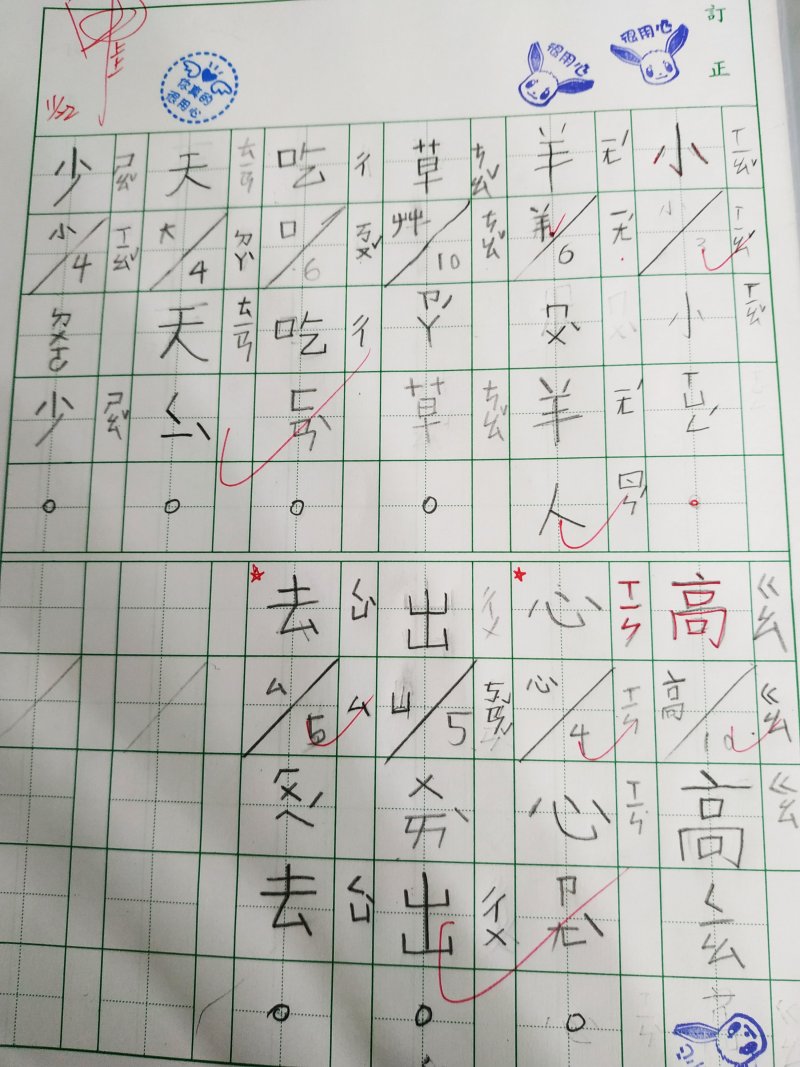 訂正
很用心
很用心
你真的很用心
11/22
小 ㄒㄧㄠˇ 小 3 ㄒㄧㄠˇ 小 ㄒㄧㄠˇ 。
羊 ㄧㄤˊ 羊 6 ㄧㄤˊ ㄇㄨˋ 羊 ㄧㄤˊ 人 ㄖㄣˊ
草 ㄘㄠˇ 艸 10 ㄘㄠˇ ㄗㄚˊ 草 ㄘㄠˇ 。
吃 ㄔ 口 6 ㄎㄡˇ 吃 ㄔ ㄈㄢˋ 。
天 ㄊㄧㄢ 大 4 ㄉㄚˋ 天 ㄊㄧㄢ 。
少 ㄕㄠˇ 小 4 ㄒㄧㄠˇ ㄉㄨㄛ 少 ㄕㄠˇ 。
高 ㄍㄠ 高 10 ㄍㄠ 高 ㄍㄠ
心 ㄒㄧㄣ 心 4 ㄒㄧㄣ 心 ㄒㄧㄣ ㄗㄤˋ 。
出 ㄔㄨ 凵 5 ㄎㄢˇ ㄨㄞˋ 出 ㄔㄨ 。
去 ㄑㄩˋ ㄙ 5 ㄙ 去 ㄑㄩˋ 。